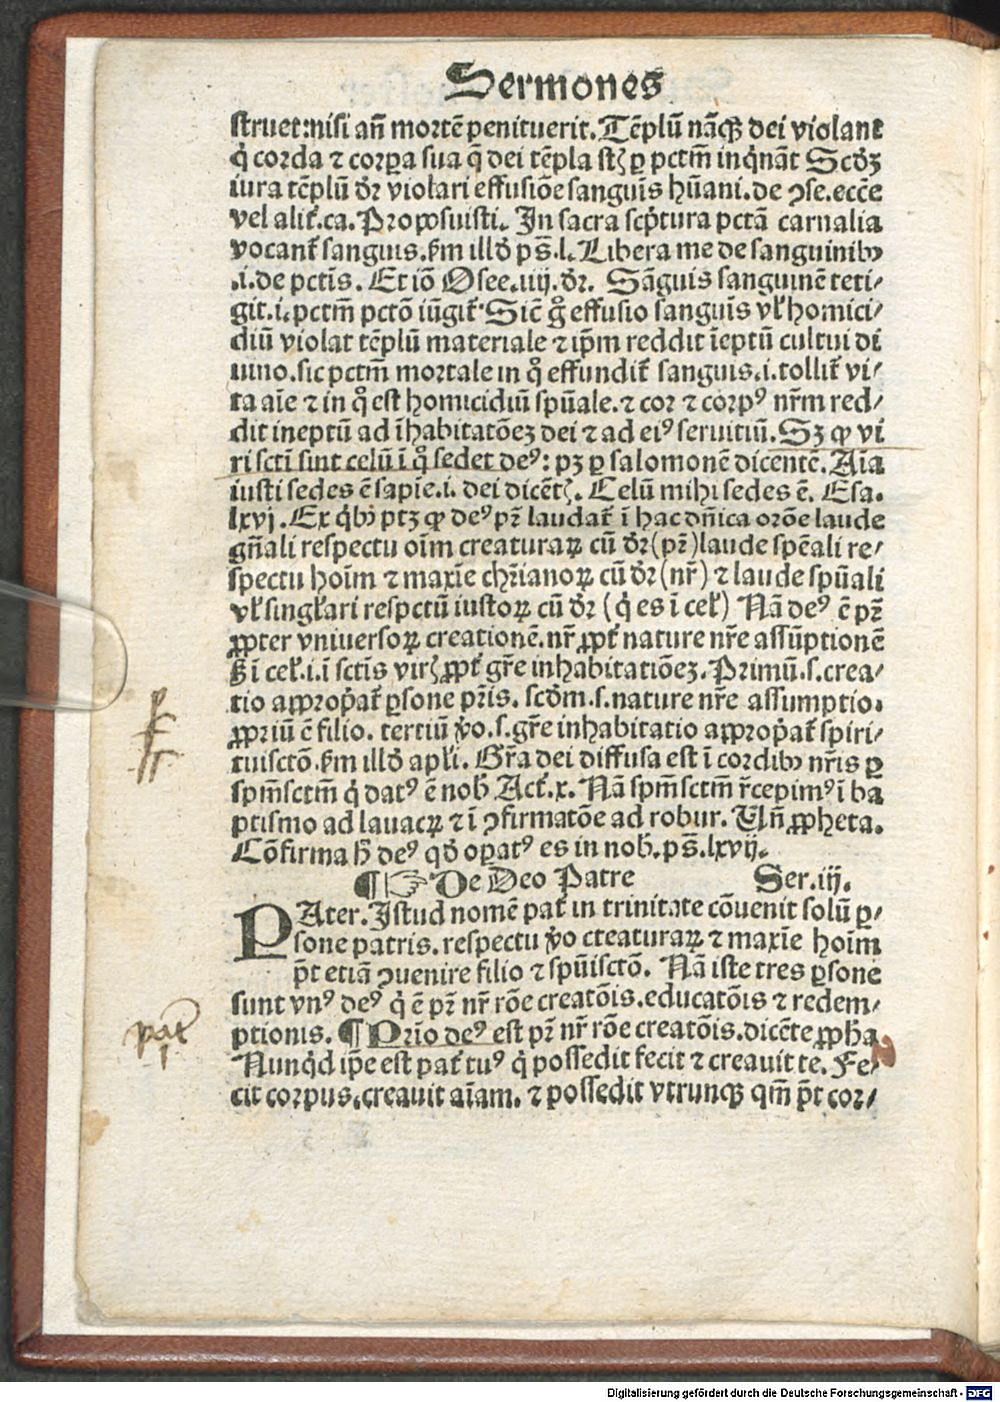 Sermones
struet:nisi an̄ mortē penituerit. Tēplū nāqꝫ dei violant
q̇ corda ⁊ corꝑa sua q̄ dei tēpla st̄ ꝑ pctm̄ inq̇nāt Scd̓ꝫ
iura tēplū dr̄ violari effusiōe sanguīs hūani. de ꝯse. ecc̄e
vel alit̄. ca. Proposuisti. In sacra sc̓ptura pctā carnalia
vocant̄ sanguis. s̄m illd̓ ps̄. l. Libera me de sanguinibꝰ
.i. de pctīs. Et iō Osee. iiij. dr̄. Sāguis sanguinē teti⸗
git. i. pctm̄ pctō iūgit̄. Sic̄ g̊ effusio sanguīs vl̄ homici⸗
diū violat tēplū materiale ⁊ ip̄m reddit īeptū cultui di
uino. sic pctm̄ mortale in q̊ effundit̄ sanguis. i. tollit̄ vi⸗
ta aīe ⁊ in q̊ est homicidiū spūale. ⁊ cor ⁊ corpꝰ nr̄m red⸗
dit ineptū ad īhabitatōeꝫ dei ⁊ ad eiꝰ seruitiū. Sꝫ ꝙ vi
ri sctī sint celū ī q̊ sedet deꝰ: pꝫ ꝑ salomonē dicentē. Aīa
iusti sedes ē sapīe. i. dei dicēt̄. Celū mihi sedes ē. Esa.
lxvj. Ex q̇bꝰ ptꝫ ꝙ deꝰ pr̄ laudat̄ ī hac dn̄ica orōe laude
gn̄ali respectu oīm creaturaꝝ cū dr̄ (pr̄) laude spēali re⸗
spectu hoīm ⁊ maxīe chr̄ianoꝝ cū dr̄ (nr̄) ⁊ laude spūali
vl̄ singl̄ari respctū iustoꝝ cū dr̄ (q̇ es ī cel̄) Nā deꝰ ē pr̄
ꝓpter vniuersoꝝ creationē. nr̄ ꝓpt̄ nature nr̄e assūptionē
sꝫ ī cel̄. i. ī sctīs vir̄ ꝓpt̄ gr̄e inhabitatiōeꝫ. Primū. s. crea⸗
tio approp̓at̄ ꝑsone pr̄is. scd̓m. s. nature nr̄e assumptio.
ꝓpriū ē filio. tertiū v̓o. s. gr̄e inhabitatio approp̓at̄ spiri⸗
tuisctō. s̄m illd̓ apl̄i. Gr̄a dei diffusa est ī cordibꝰ nr̄is ꝑ
spm̄sctm̄ q̇ datꝰ ē nob̄ Act̄. x. Nā spm̄sctm̄ r̄cepimꝰ ī ba
ptismo ad lauacꝝ ⁊ ī ꝯfirmatōe ad robur. Vn̄ ꝓpheta.
Cōfirma h̄ deꝰ qd̓ oꝑatꝰ es in nob̄. ps̄. lxvij.
¶ ☞ De Deo Patre Ser. iij.
PAter. Istud nomē pat̄ in trinitate cōuenit solū ꝑ⸗
sone patris. respectu v̓o creaturaꝝ ⁊ maxīe hoīm
p̄t etiā ꝯuenire filio ⁊ spūisctō. Nā iste tres ꝑsone
sunt vnꝰ deꝰ q̇ ē pr̄ nr̄ rōe creatōis. educatōis ⁊ redem⸗
pat̄ 1
ptionis. ¶ Prīo deꝰ est pr̄ nr̄ rōe creatōis. dicēte ꝓph̄a
Nunq̇d ip̄e est pat̄ tuꝰ q̇ possedit fecit ⁊ creauit te. Fe⸗
cit corpus. creauit aīam. ⁊ possedit vtrunqꝫ qm̄ p̄t cor⸗
Digitalisierung gefördert durch die Deutsche Forschungsgemeinschaft - DFG